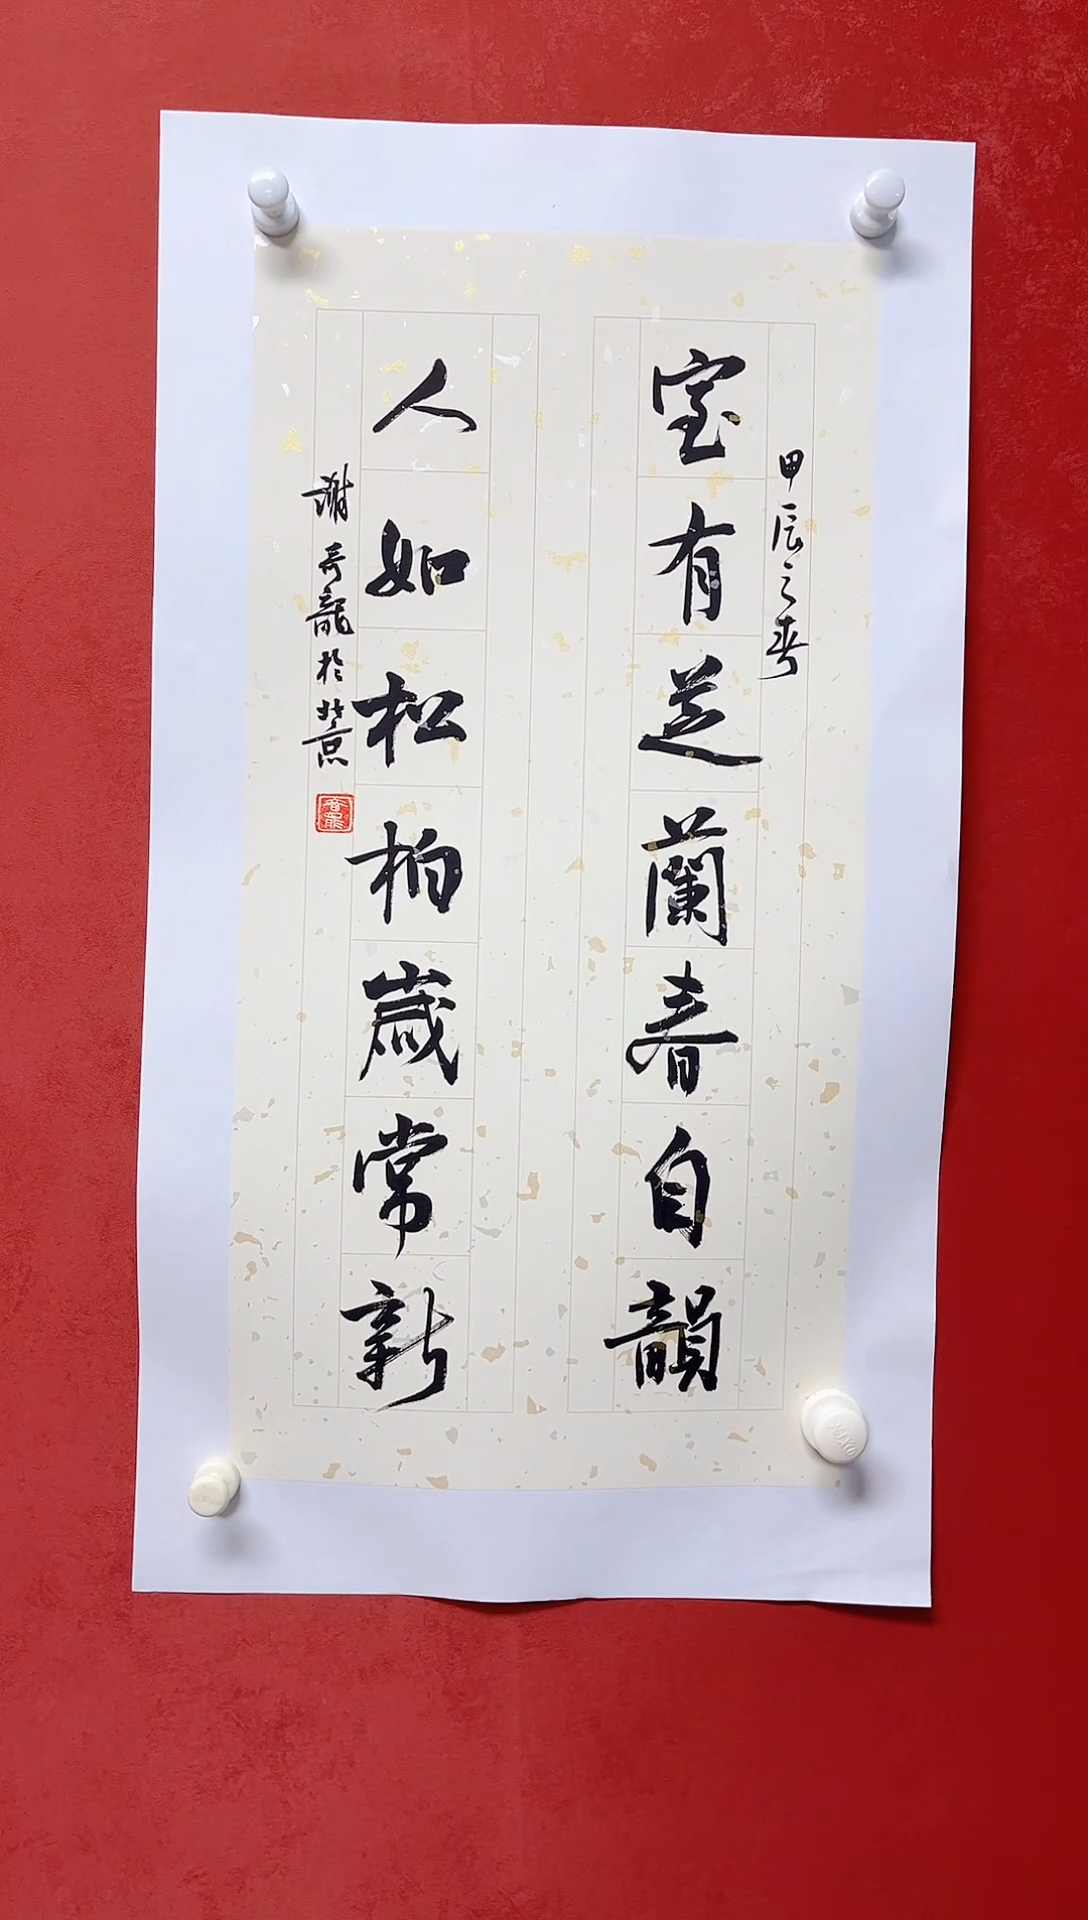 甲辰之春
室有芝蘭春自韻
人如松柏歲常新
謝奇龍於北京